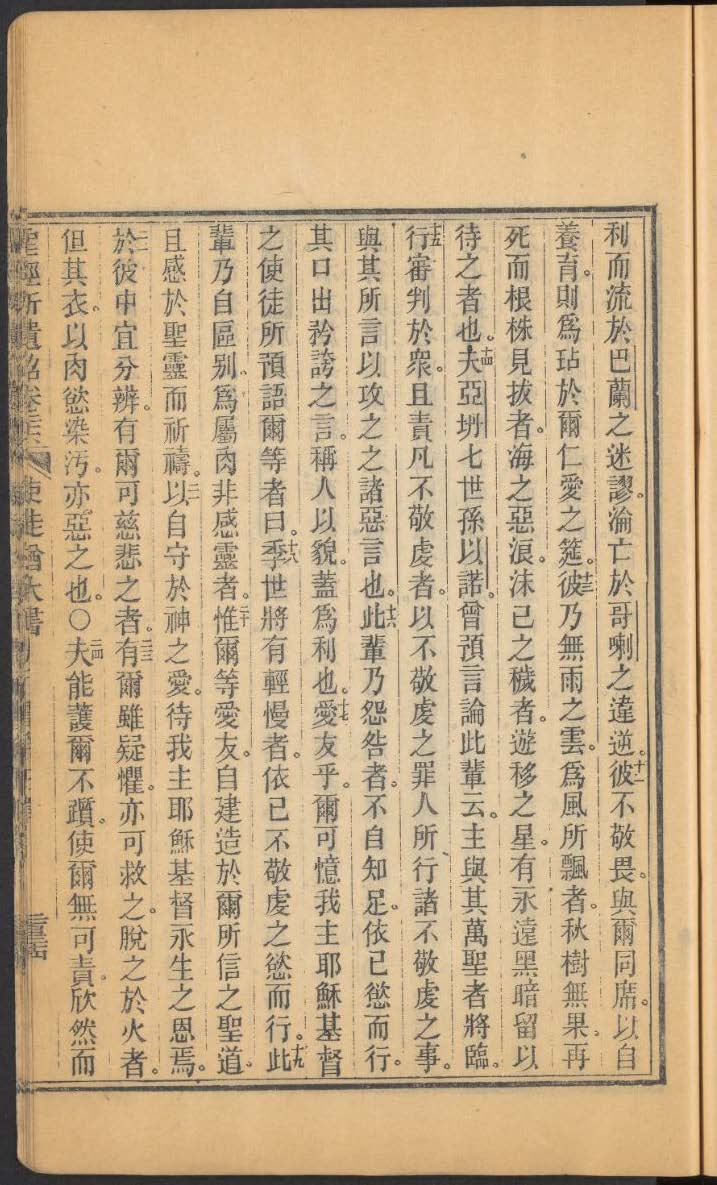 利而流於巴蘭之迷謬。淪亡於哥喇之違逆。十二彼不敬畏。與爾同席。以自
養育。則爲玷於爾仁愛之筵。十三彼乃無雨之雲。爲風所飄者。秋樹無果。再
死而根株見拔者。海之惡浪。沫已之穢者。遊移之星。有永遠黑暗留以
待之者也。十四夫亞坍七世孫以諾。曾預言論此輩云。主與其萬聖者將臨。
十五行審判於衆。且責凡不敬虔者。以不敬虔之罪人所行諸不敬虔之事。
與其所言以攻之之諸惡言也。十六此輩乃怨咎者。不自知足。依已慾而行。
其口出矜誇之言。稱人以貌。蓋爲利也。十七愛友乎。爾可憶我主耶穌基督
之使徒所預語爾等者曰。十八季世將有輕慢者。依已不敬虔之慾而行。十九此
輩乃自區別。爲屬肉非感靈者。二十惟爾等愛友。自建造於爾所信之聖道。
且感於聖靈而祈禱。二一以自守於神之愛。待我主耶穌基督永生之恩焉。
二二於彼中宜分辨。有爾可慈悲之者。二三有爾雖疑懼。亦可救之。脫之於火者。
但其衣。以肉慾染汚。亦惡之也。〇二四夫能護爾不躓。使爾無可責。欣然而
聖經新遺詔卷 使徒